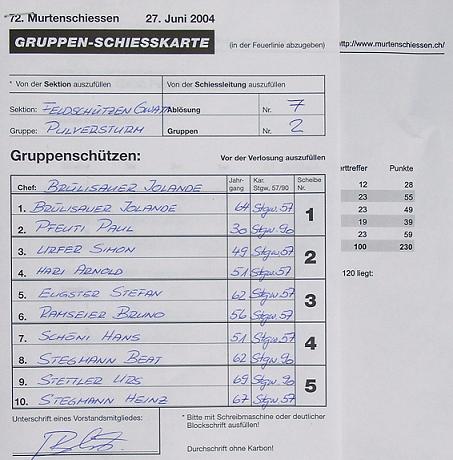 72. Murtenschiessen 27. Juni 2004
GRUPPEN-SCHIESSKARTE (in der Feuerlinie abzugeben)
http://www.murtenschiessen.ch/
* Von der Sektion auszufüllen Von der Schiessleitung auszufüllen
Sektion: FELDSCHÜTZEN GWATT Ablösung Nr. 7
Gruppe: PULVERSTURM Gruppen Nr. 2
Gruppenschützen: Vor der Verlosung auszufüllen
Chef: BRÜLISAUER JOLANDE Jahrgang Kar. Stgw. 57/90 Scheibe Nr.
1. BRÜLISAUER JOLANDE 64 Stgw. 57 1
2. PFEUTI PAUL 30 Stgw. 90
3. URFER SIMON 49 Stgw. 57 2
4. HARI ARNOLD 51 Stgw. 57
5. EUGSTER STEFAN 62 Stgw. 57 3
6. RAMSEIER BRUNO 56 Stgw. 57
7. SCHÖNI HANS 51 Stgw. 57 4
8. STEGMANN BEAT 62 Stgw. 90
9. STETTLER URS 69 Stgw. 90 5
10. STEGMANN HEINZ 67 Stgw. 57
Unterschrift eines Vorstandsmitgliedes:
* Bitte mit Schreibmaschine oder deutlicher
Blockschrift ausfüllen!
Durchschrift ohne Karbon!
erttreffer Punkte
12 28
23 55
23 49
19 39
23 59
100 230
120 liegt: